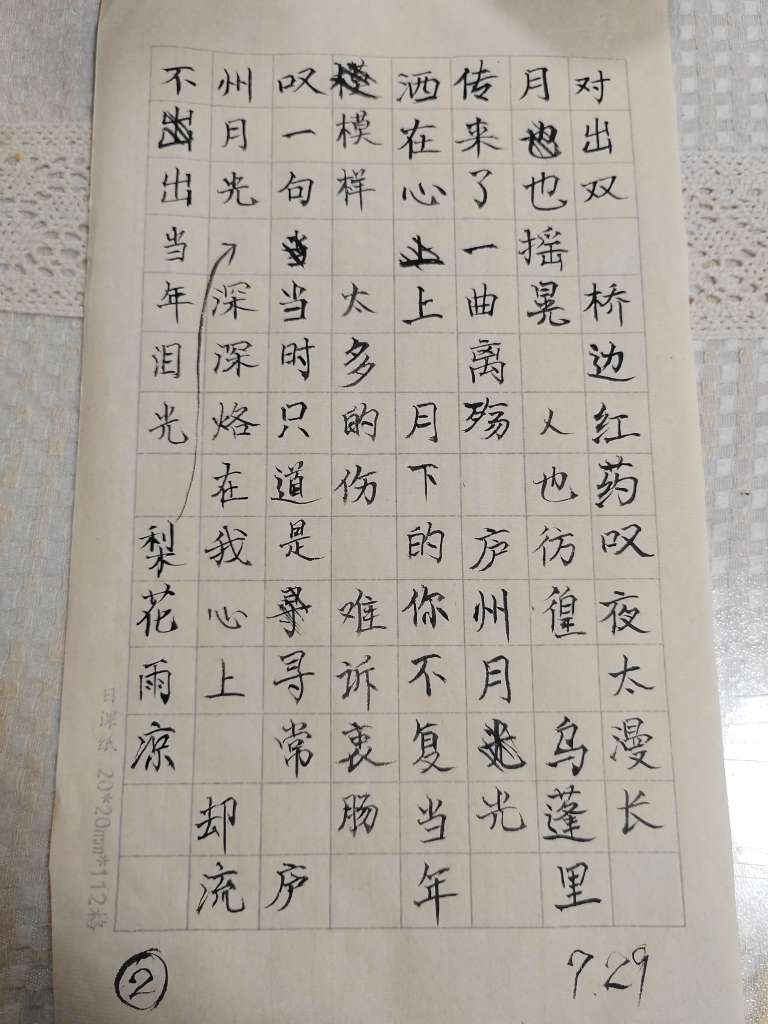 对出双 桥边红药叹夜太漫长
月也摇晃 人也彷徨 乌蓬里
传来了一曲离殇 庐州月光
洒在心上 月下的你不复当年
模样 太多的伤 难诉衷肠
叹一句当时只道是寻常 庐
州月光 深深烙在我心上 却流
不出当年泪光 梨花雨凉
② 7.29
日课纸 20*20mm*112格